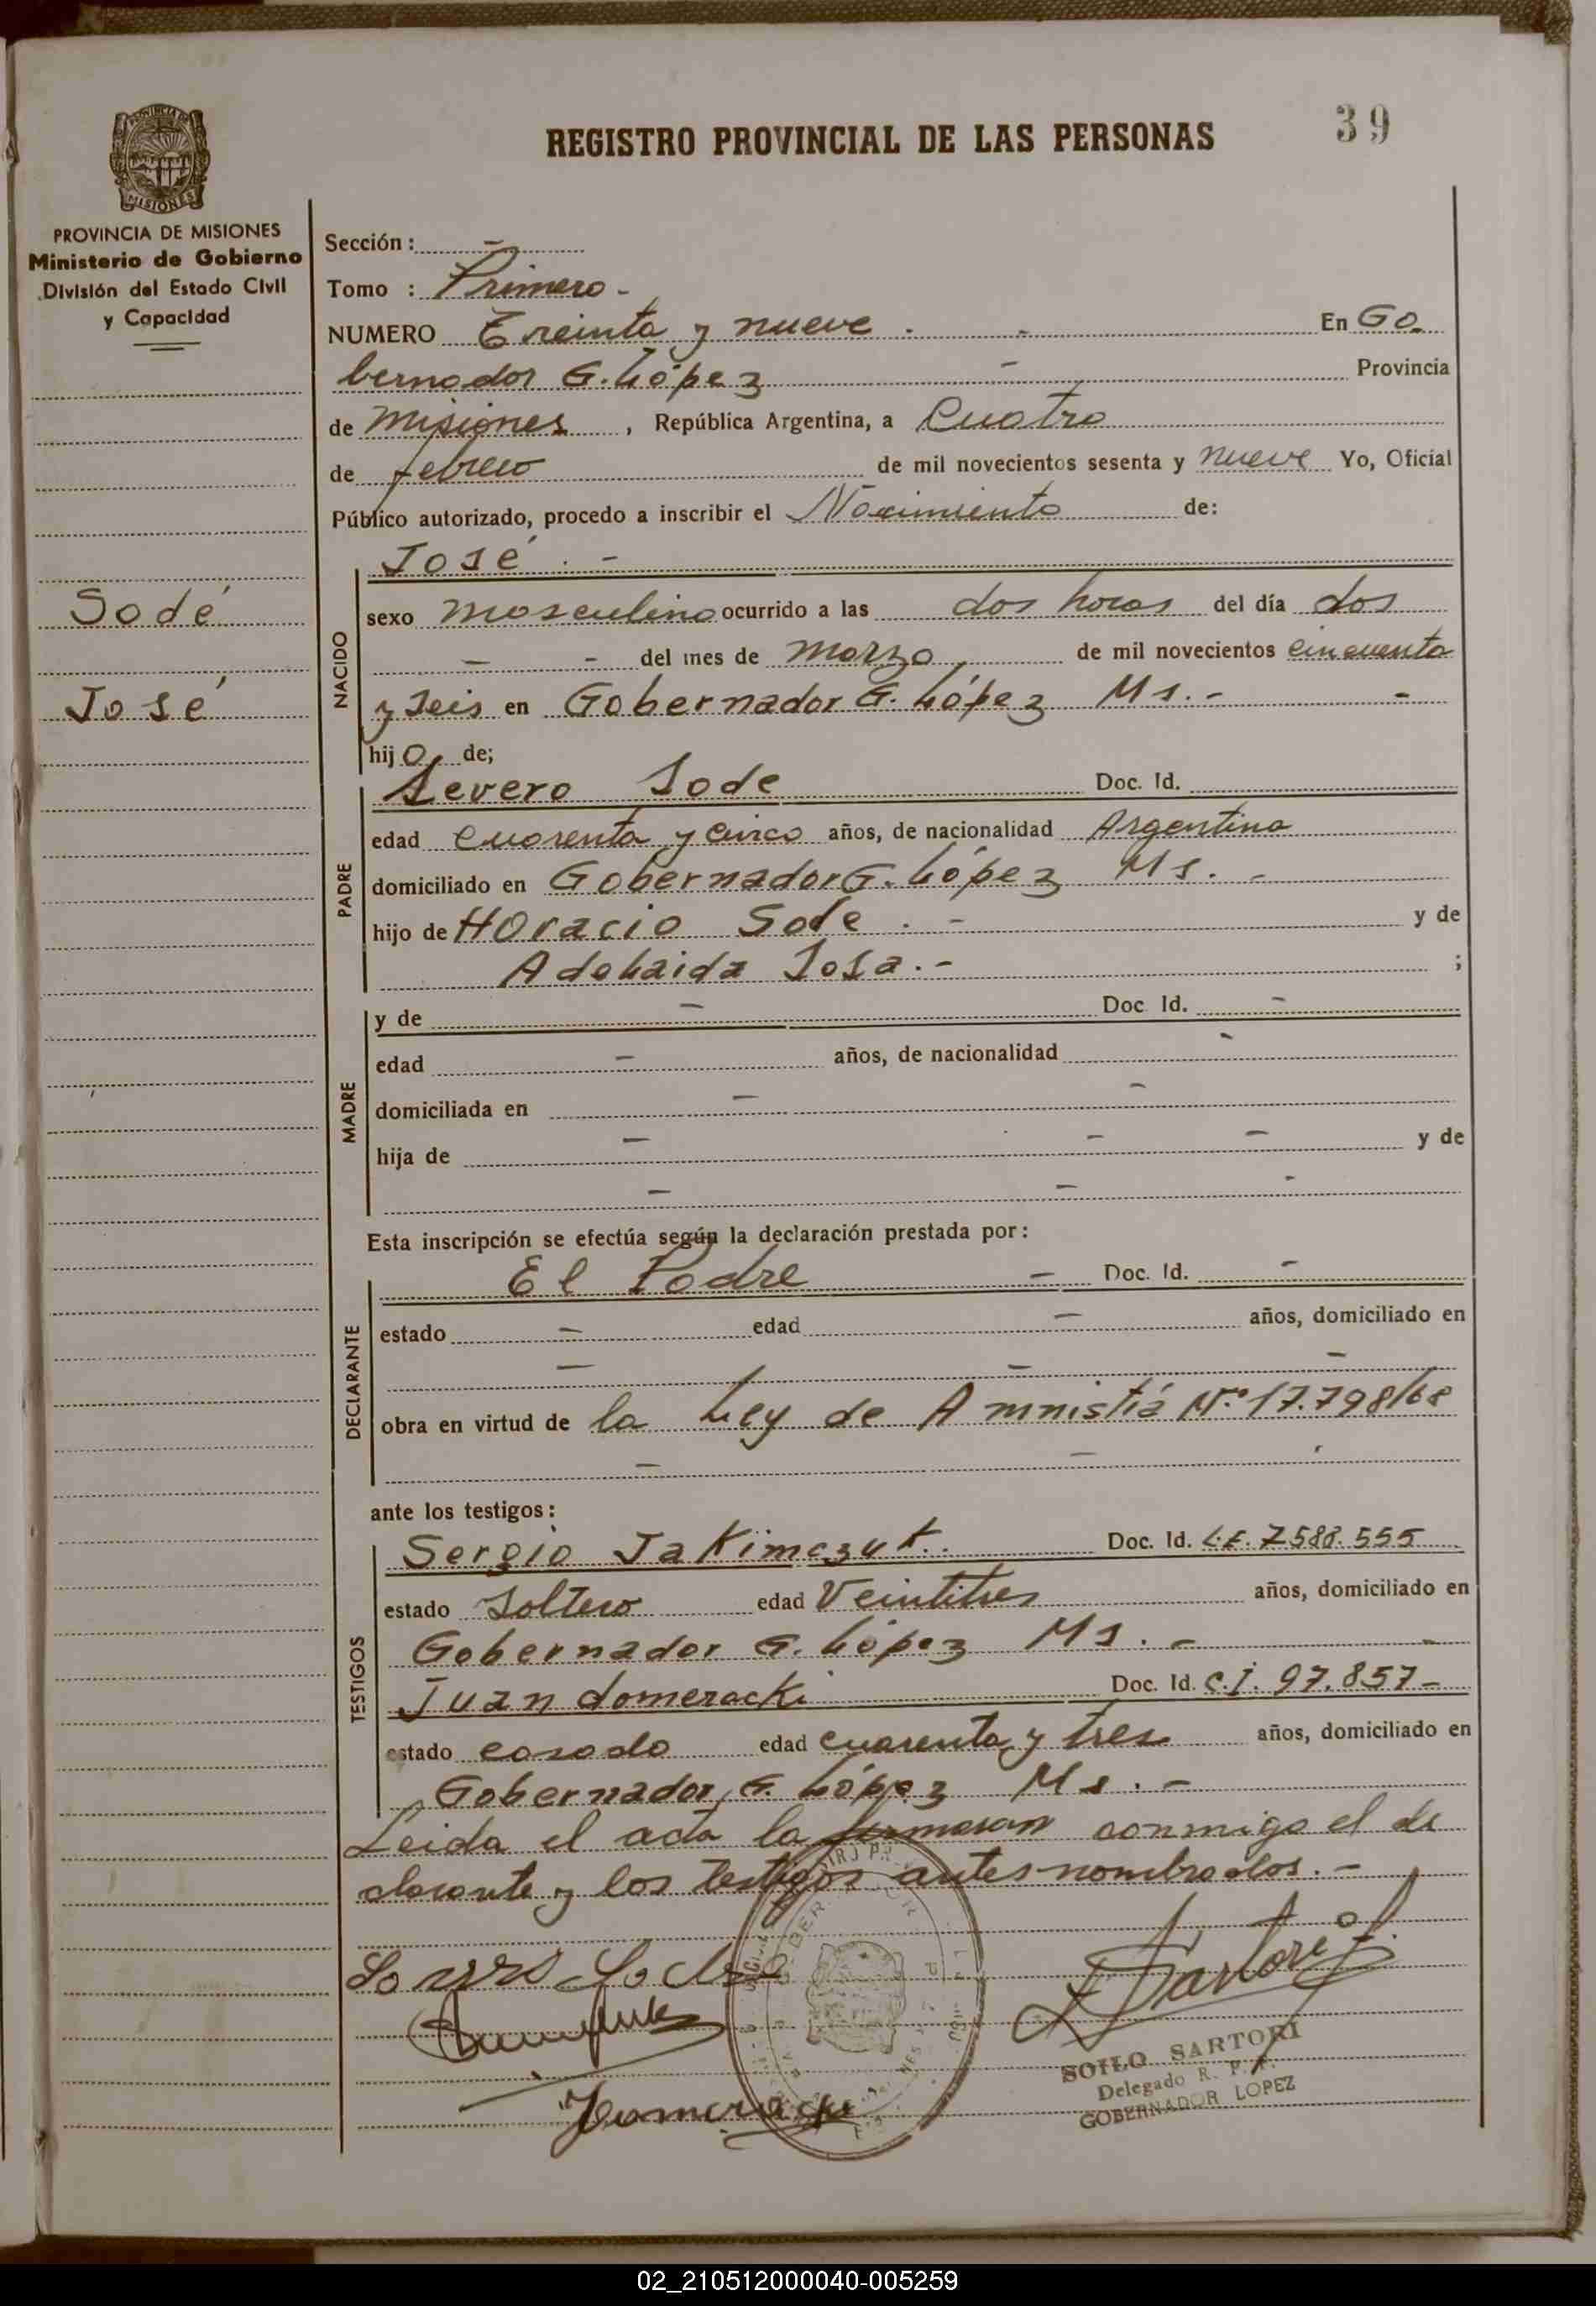 REGISTRO PROVINCIAL DE LAS PERSONAS
39
PROVINCIA DE MISIONES
Ministerio de Gobierno
División del Estado Civil
y Capacidad
Sodé
José
Sección : -
Tomo : Primero -
NUMERO Treinta y nueve . - En Go
bernador G. López - Provincia
de Misiones , República Argentina, a Cuatro
de febrero de mil novecientos sesenta y nueve Yo, Oficial
Público autorizado, procedo a inscribir el Nacimiento de:
José . -
NACIDO
sexo masculino ocurrido a las dos horas del día dos
- - del mes de marzo de mil novecientos cincuenta
y seis en Gobernador G. López Ms. - -
hijo de;
PADRE
Severo Sode Doc. Id.
edad cuarenta y cinco años, de nacionalidad Argentina
domiciliado en Gobernador G. López Ms. -
hijo de Horacio Sode . - y de
Adelaida Sosa . - ;
MADRE
y de - Doc. Id. -
edad - años, de nacionalidad -
domiciliada en - -
hija de - - - y de
- - -
Esta inscripción se efectúa según la declaración prestada por :
DECLARANTE
El Padre - Doc. Id. -
estado - edad - años, domiciliado en
- - -
obra en virtud de la Ley de Amnistiá Nº 17.798/68
- -
ante los testigos :
TESTIGOS
Sergio Jakimczuk . Doc. Id. L.E. 7.588.555
estado Soltero edad Veintitres años, domiciliado en
Gobernador G. López Ms. - -
Juan domeracki Doc. Id. C.I. 97.857 -
estado casado edad cuarenta y tres años, domiciliado en
Gobernador G. López Ms. -
Leida el acta la firmaran conmigo el de
clarante y los testigos antes nombrados. -
SOILO SARTORI
Delegado R. P. P.
GOBERNADOR LOPEZ
02_210512000040-005259